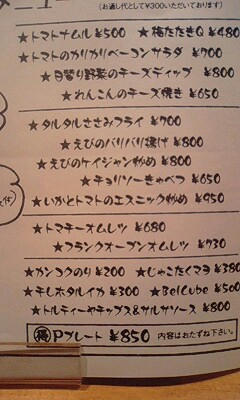 メニュー (お通し代として¥300いただいております)
★トマトナムル ¥500 ★梅たたきQ ¥480
★トマトのカリカリベーコンサラダ ¥700
★日替り野菜のチーズディップ ¥800
★れんこんのチーズ焼き ¥650
★タルタルささみフライ ¥700
★えびのパリパリ揚げ ¥800
★えびのケイジャン炒め ¥800
★チョリソーきゃべつ ¥650
★いかとトマトのエスニック炒め ¥950
★トマチーオムレツ ¥680
★フランクオープンオムレツ ¥730
★カンコクのり ¥200 ★じゃこたくマヨ ¥380
★干しホタルイカ ¥300 ★BelCube ¥500
★トルティーヤチップス&サルサソース ¥800
得Pプレート ¥850 内容はおたずね下さい。